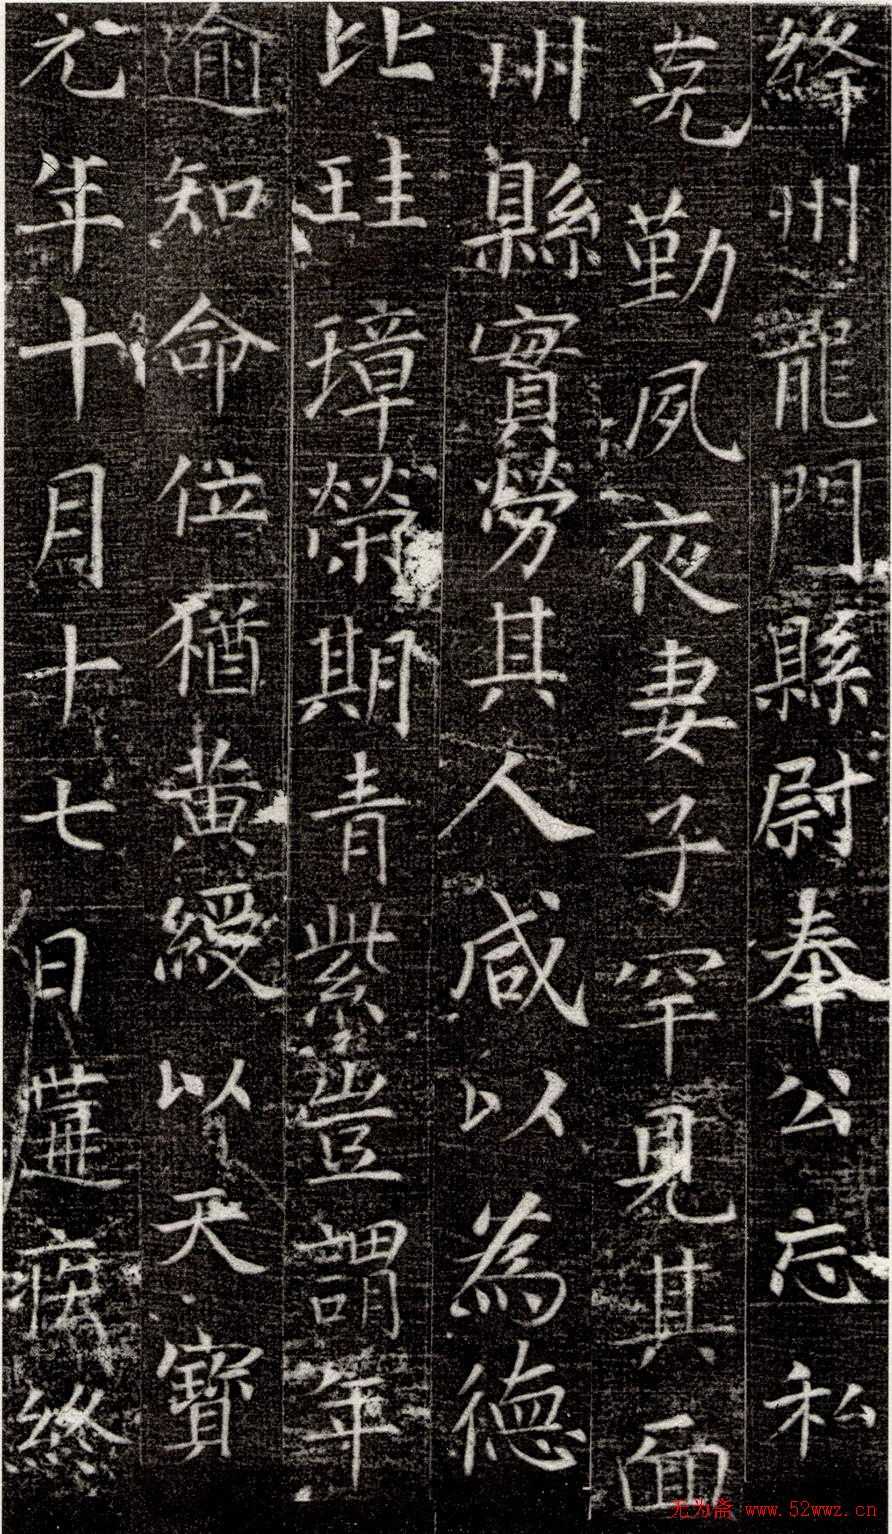 絳州龍門縣尉奉公忘私
克勤夙夜妻子罕見其面
州縣實勞其人咸以為德
比珪璋榮期青紫豈謂年
逾知命位猶黃綬以天寶
元年十月十七日遘疾終
无为斋 www.52wwz.cn